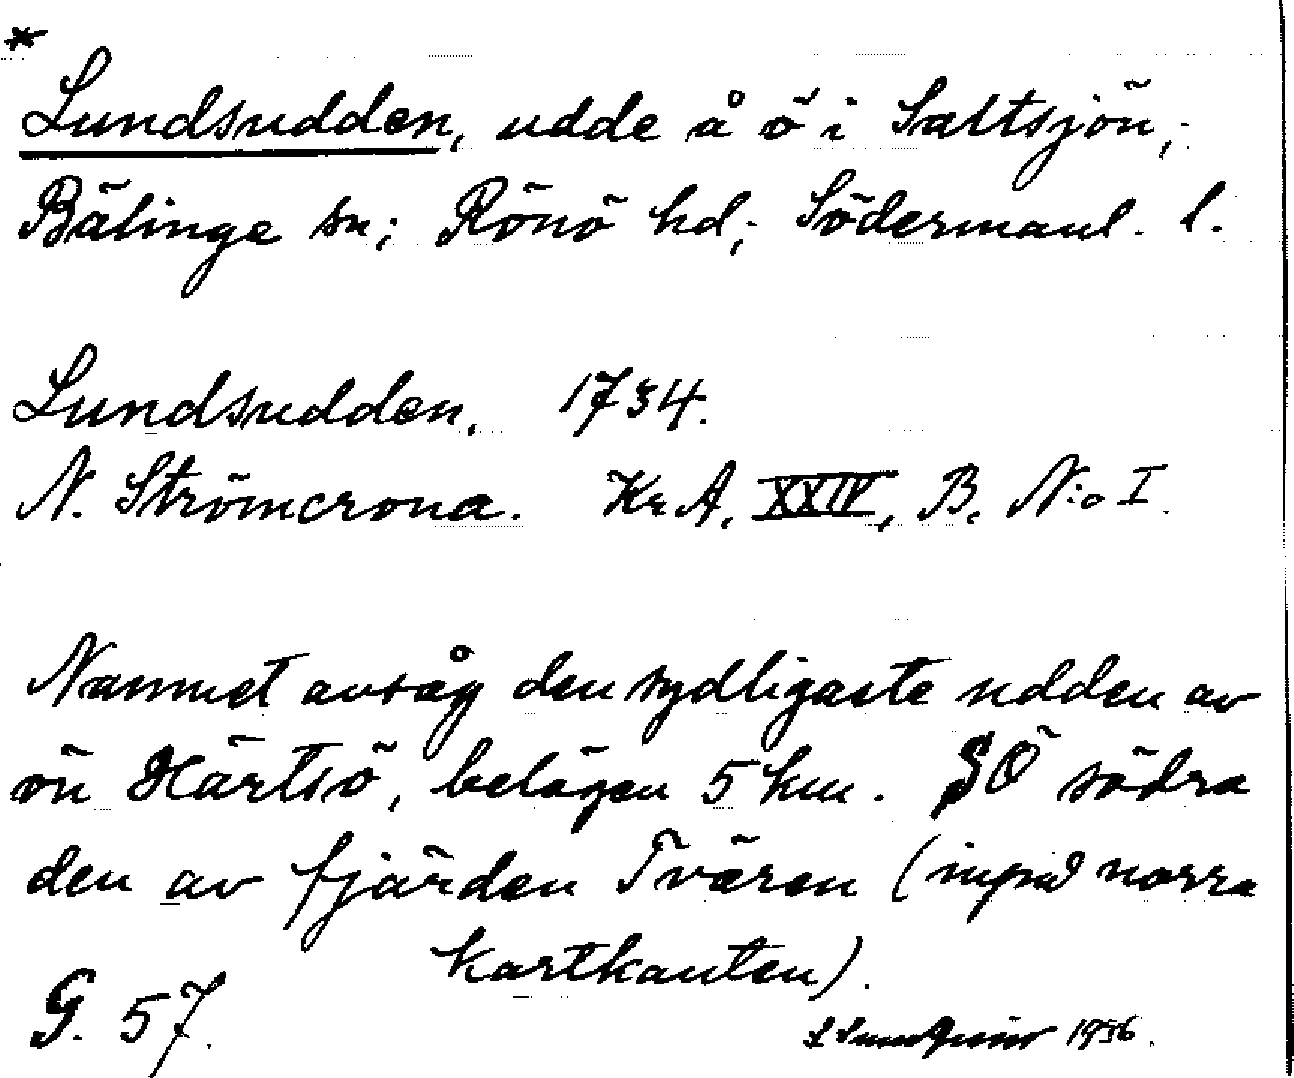 *
Lundsudden, udde å ö i Saltsjön,
Bälinge sn; Rönö hd; Södermanl. l.
Lundsudden. 1734.
N. Strömcrona. Kr A. XXIV, B. N:o I.
Namnet avsåg den sydligaste udden av
ön Härtsö, belägen 5 km. SÖ södra
den av fjärden Tvären (invid norra
kartkanten).
G. 57.
1956.